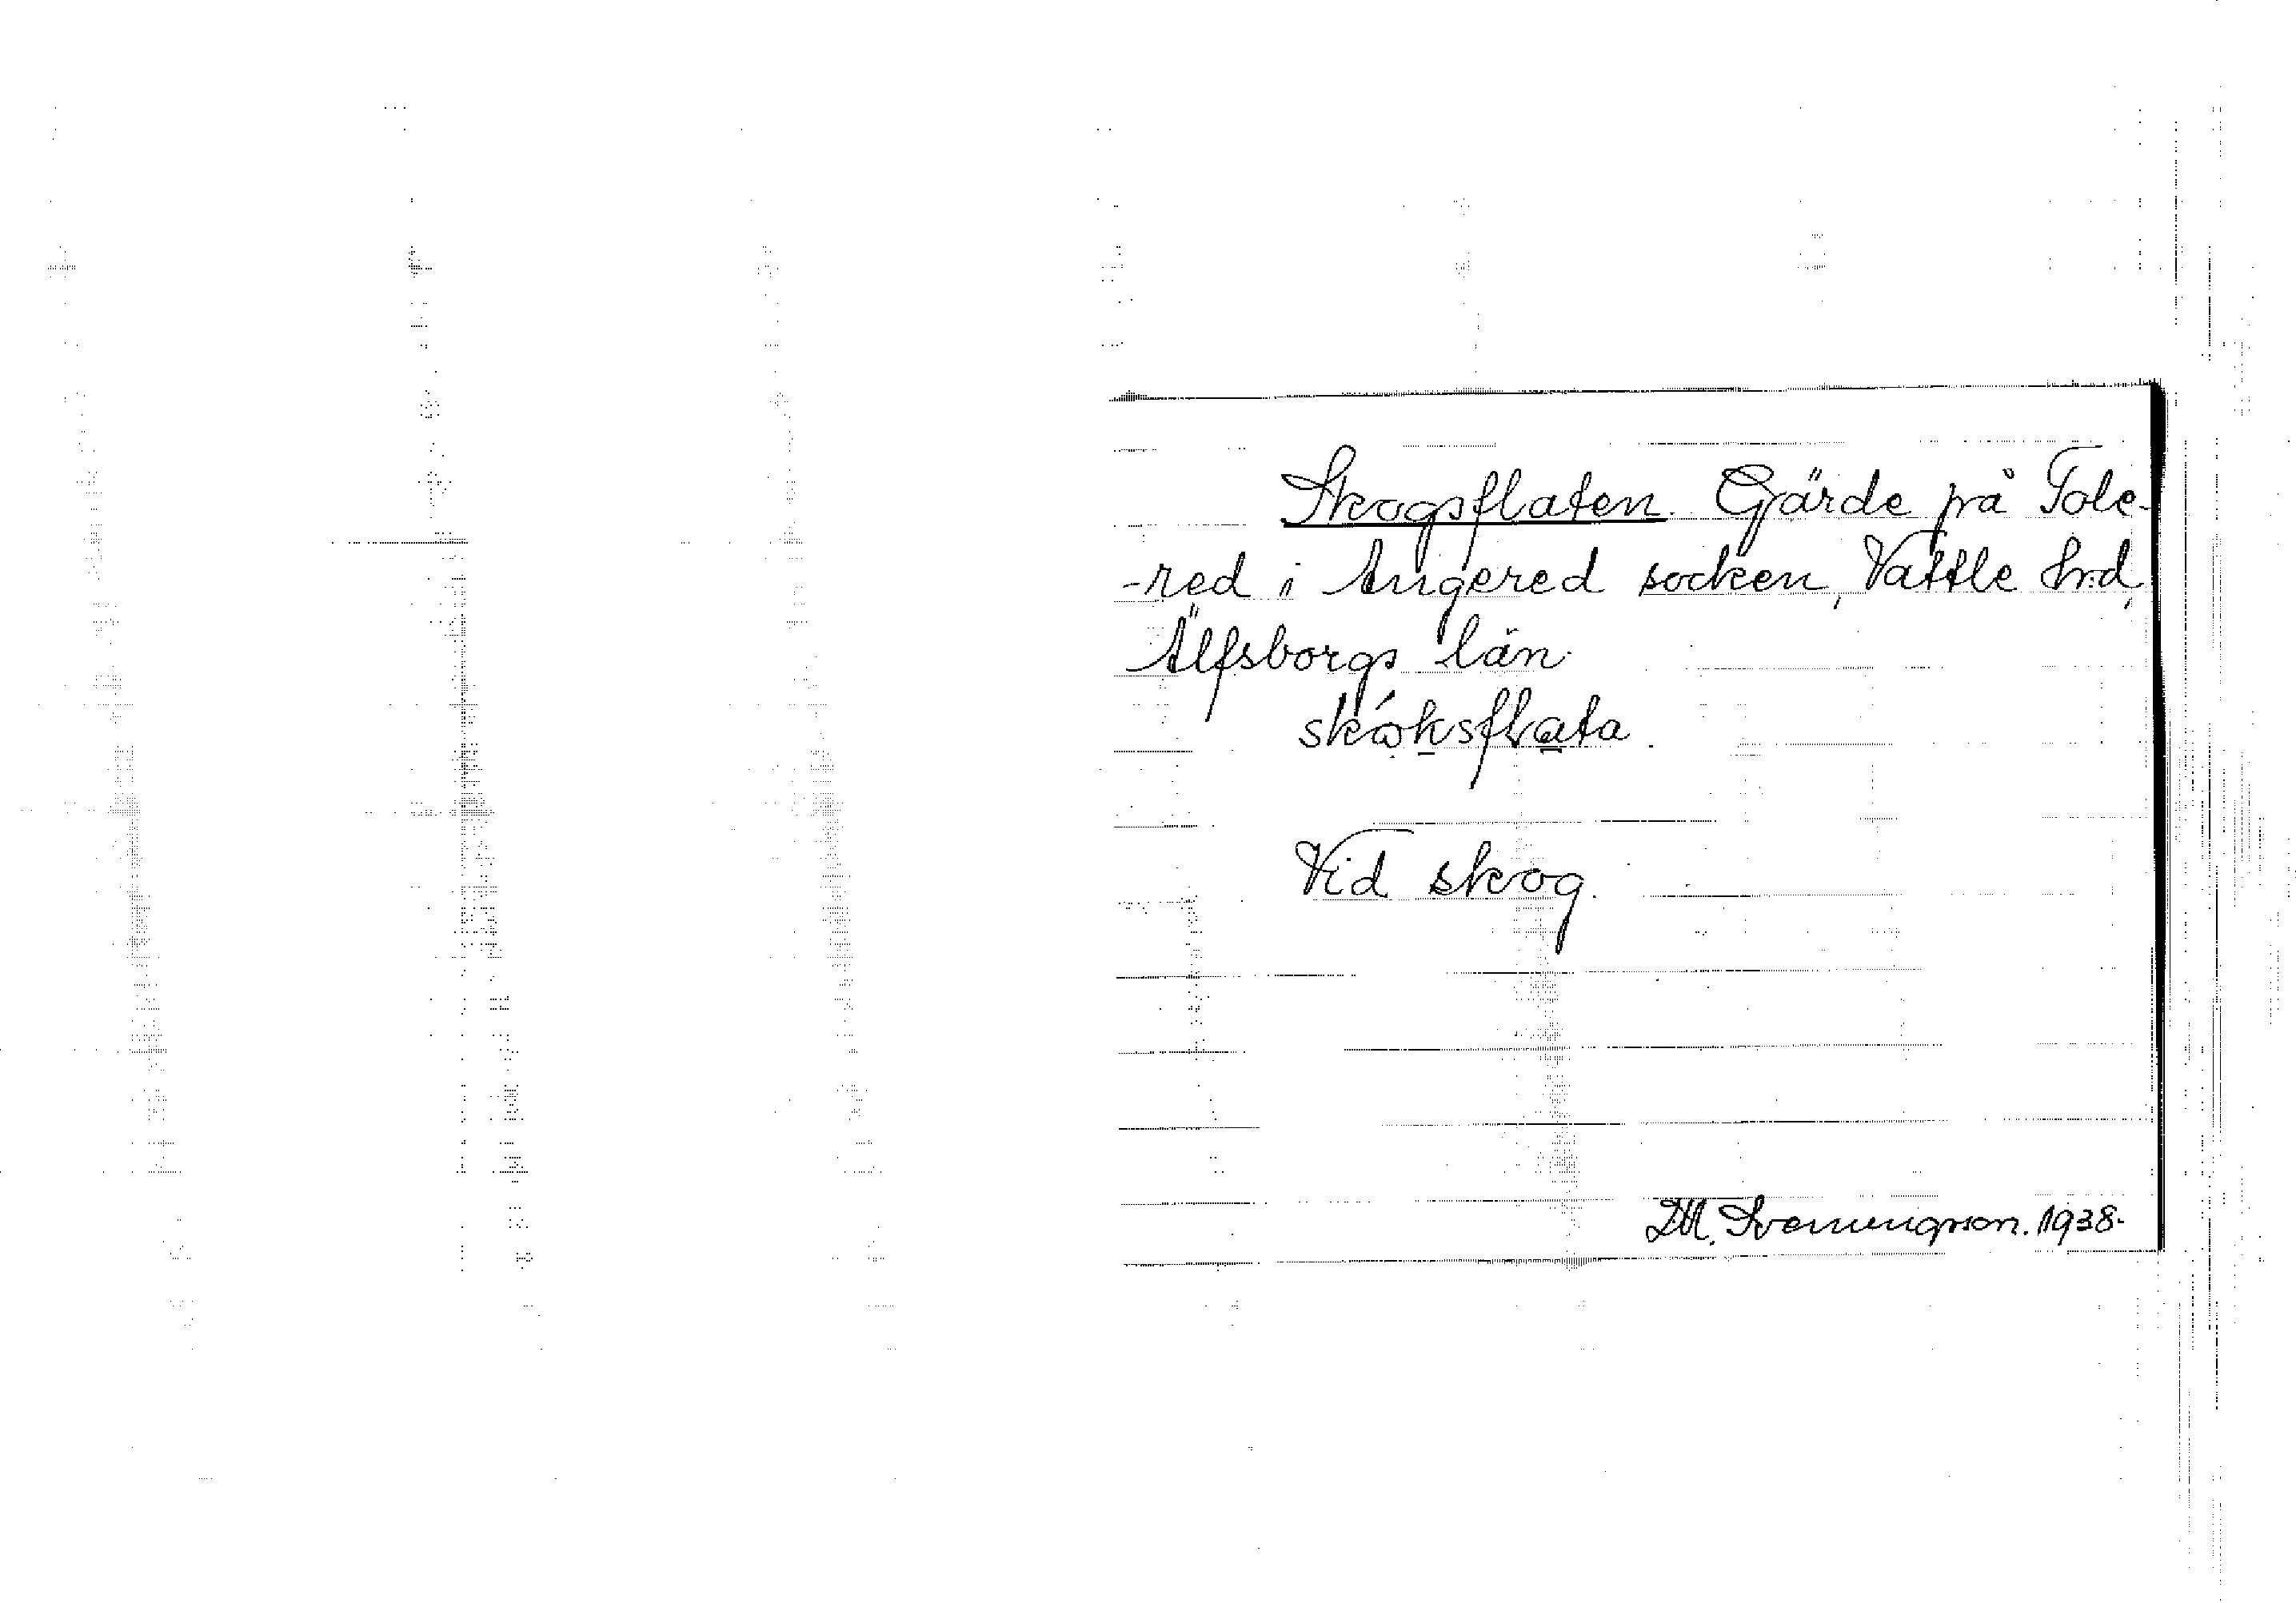 Skogsflaten. Gärde på Tole-
-red i Angered socken, Vättle hrd,
Älfsborgs län.
skóksflata.
Vid skog.
DM. Svenungson. 1938.